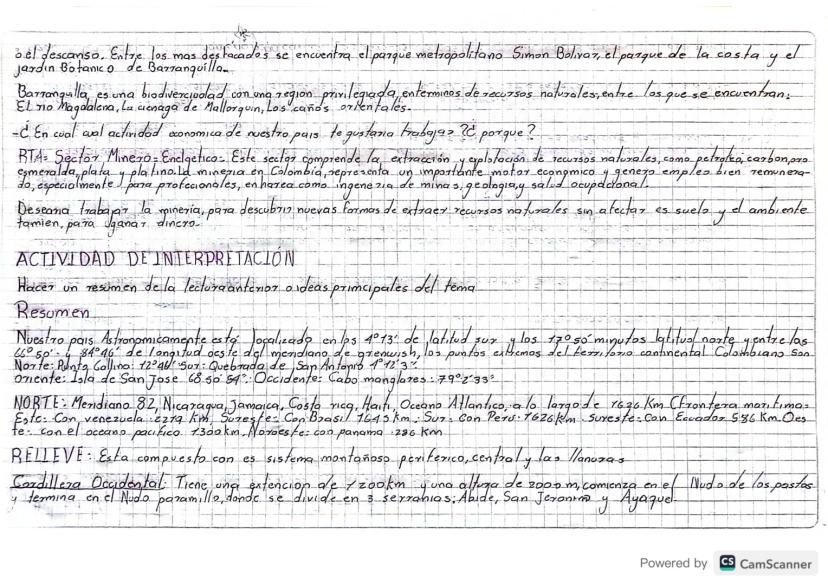 o el descanso. Entre los mas destacados se encuentra el parque metropolitano Simon Bolivar, el parque de la costa y el
jardin Botanico de Barranquilla.
Barranquilla es una biodiverciodad con una region privilegiada, enterminos de recursos naturales, entre los que se encuentran:
El rio Magdalena, La cienaga de Mallorquin, Los caños orientales.
-¿ En cual actividad economica de nuestro pais te gustaria trabajar? ¿ porque?
RTA= Sector Minero-Energetico: Este sector comprende la extracción y explotación de recursos naturales, como petroleo, carbon, oro
esmeralda, plata y platino. La mineria en Colombia, representa un importante motor economico y genera empleo bien remunera-
do, especialmente para profecionales, en harea como ingeneria de minas, geologia y salud ocupacional.
Desearia trabajar la mineria, para descubrir nuevas formas de extraer recursos naturales sin afectar es suelo y el ambiente
tamien, para ganar dinero.
ACTIVIDAD DE INTERPRETACIÓN
Hacer un resimen de la lectura anterior o ideas primcipales del tema
Resumen
Nuestro pais Astronomicamente está localizado en los 4°13' de latitud sur y los 12°50' minutos latitud norte y entre los
66°50' y 84°46' de longitud oeste del meridiano de grenwish, los puntos extremos del territorio continental Colombiano Son
Norte: Punta Gallina: 12°46' Sur: Quebrada de San Antonio 4°12'3"
oriente: Isla de San Jose 68°50'54": Occidente: Cabo manglares: 79°2'33"
NORTE: Meridiano 82, Nicaragua, Jamaica, Costa rica, Haiti, Oceano Atlantico, a lo largo de 1626 Km (Frontera maritima=
Este: Con venezuela 2219 Km, Sureste: Con Brasil 1645 km, Sur: Con Peru: 1626 Km. Sureste: Con Ecuador 586 Km. Oes
te: con el oceano pacifico 1300km, Noroeste: con panama 286 Km
RELIEVE: Esta compuesto con es sistema montañoso periferico, central y las llanuras
Cordillera Occidental: Tiene una extención de 1200km y una altura de 2000 m, comienza en el Nudo de los pastos
y termina en el Nudo paramillo, donde se divide en 3 serranias: Abide, San Jeronimo y Ayapel.
Powered by CS CamScanner